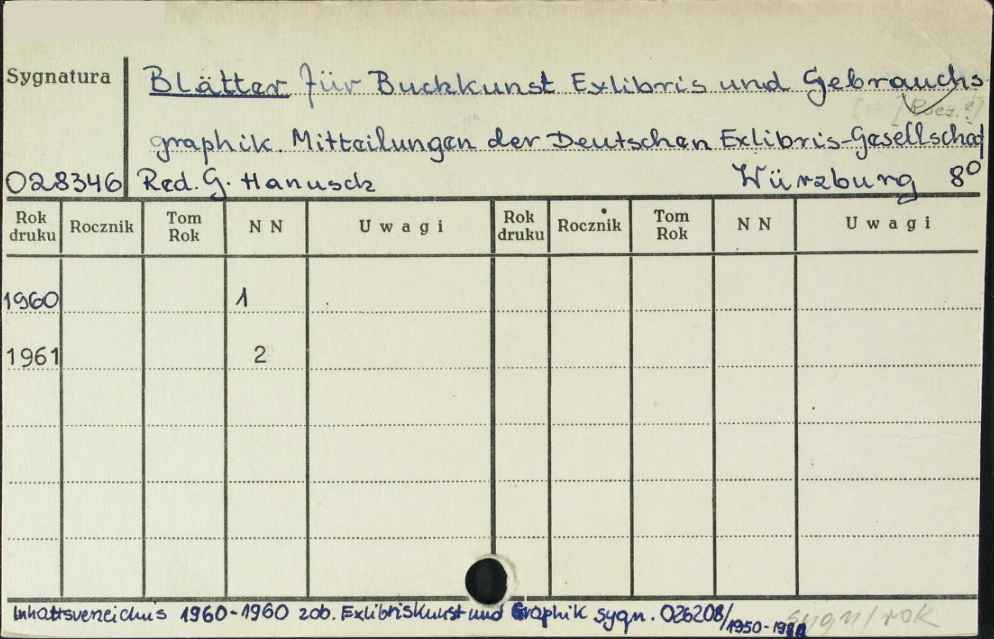 Sygnatura
Blätter für Buchkunst Exlibris und Gebrauchs
graphik. Mitteilungen der Deutschen Exlibris-Gesellschaf
028346 Red. G. Hanusch Würzburg 8°
Rok druku Rocznik Tom Rok N N Uwagi Rok druku Rocznik Tom Rok N N Uwagi
1960 1
1961 2
Inhaltsverzeichnis 1960-1960 zob. Exlibriskunst und Graphik sygn. 026208/1950- sygn/rok